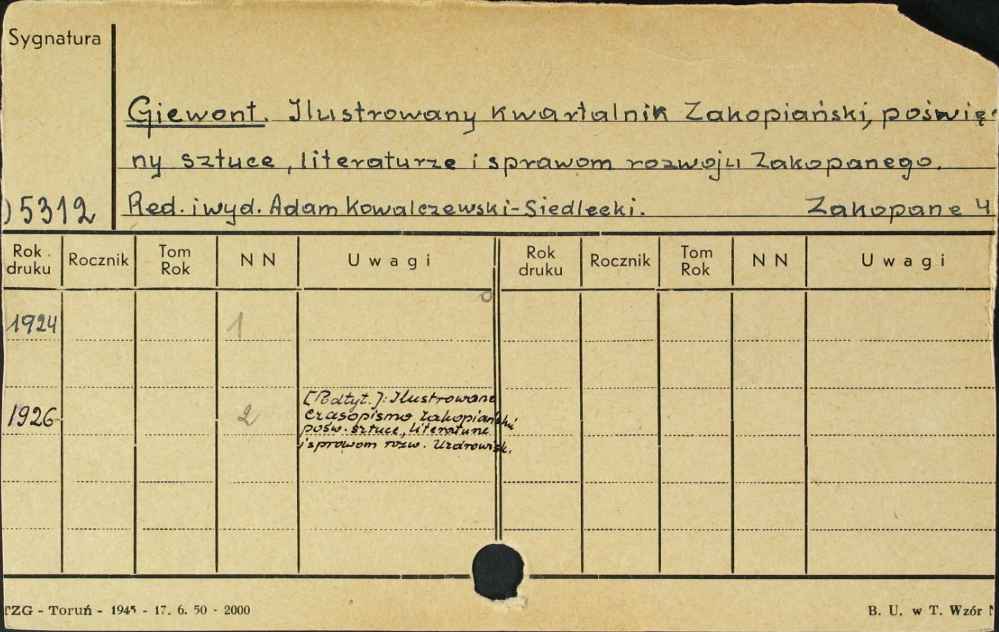 Sygnatura
Giewont. Ilustrowany kwartalnik Zakopiański, poświę-
ny sztuce, literaturze i sprawom rozwoju Zakopanego.
)5312 Red. i wyd. Adam Kowalczewski-Siedlecki. Zakopane 4
Rok druku Rocznik Tom Rok N N Uwagi Rok druku Rocznik Tom Rok N N Uwagi
1924 1
1926 2 [Podtyt.]: Ilustrowane
czasopismo zakopiański
pośw. sztuce, literaturze
i sprawom rozw. Uzdrowisk.
TZG - Toruń - 1945 - 17. 6. 50 - 2000 B. U. w T. Wzór N